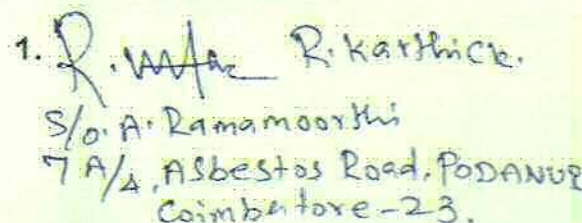 1. R. Karthick.
S/o. A. Ramamoorthi
7 A/4, Asbestos Road, PODANUR
Coimbatore-23.